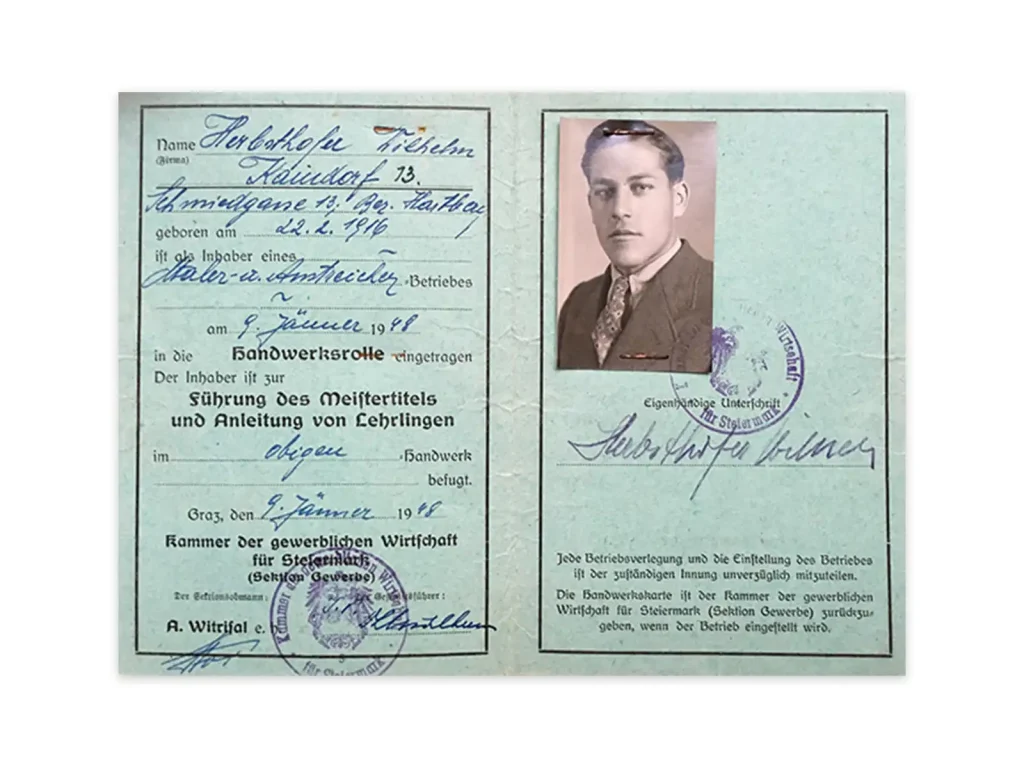 Name Herbsthofer Wilhelm
(Firma)
Kaindorf 13.
Schmiedgasse 13, Bez. Hartberg
geboren am 22.2.1916
ist als Inhaber eines
Maler- u. Anstreicher -Betriebes
am 9. Jänner 1948
in die Handwerksrolle eingetragen
Der Inhaber ist zur
Führung des Meistertitels
und Anleitung von Lehrlingen
im obigen -Handwerk
befugt.
Graz, den 9. Jänner 1948
Kammer der gewerblichen Wirtschaft
für Steiermark
(Sektion Gewerbe)
Der Sektionsobmann: Der Geschäftsführer:
A. Witrisal e. h.
Kammer der gewerblichen Wirtschaft
für Steiermark
Wirtschaft
für Steiermark
Eigenhändige Unterschrift
Herbsthofer Wilhelm
Jede Betriebsverlegung und die Einstellung des Betriebes
ist der zuständigen Innung unverzüglich mitzuteilen.
Die Handwerkskarte ist der Kammer der gewerblichen
Wirtschaft für Steiermark (Sektion Gewerbe) zurückzu-
geben, wenn der Betrieb eingestellt wird.